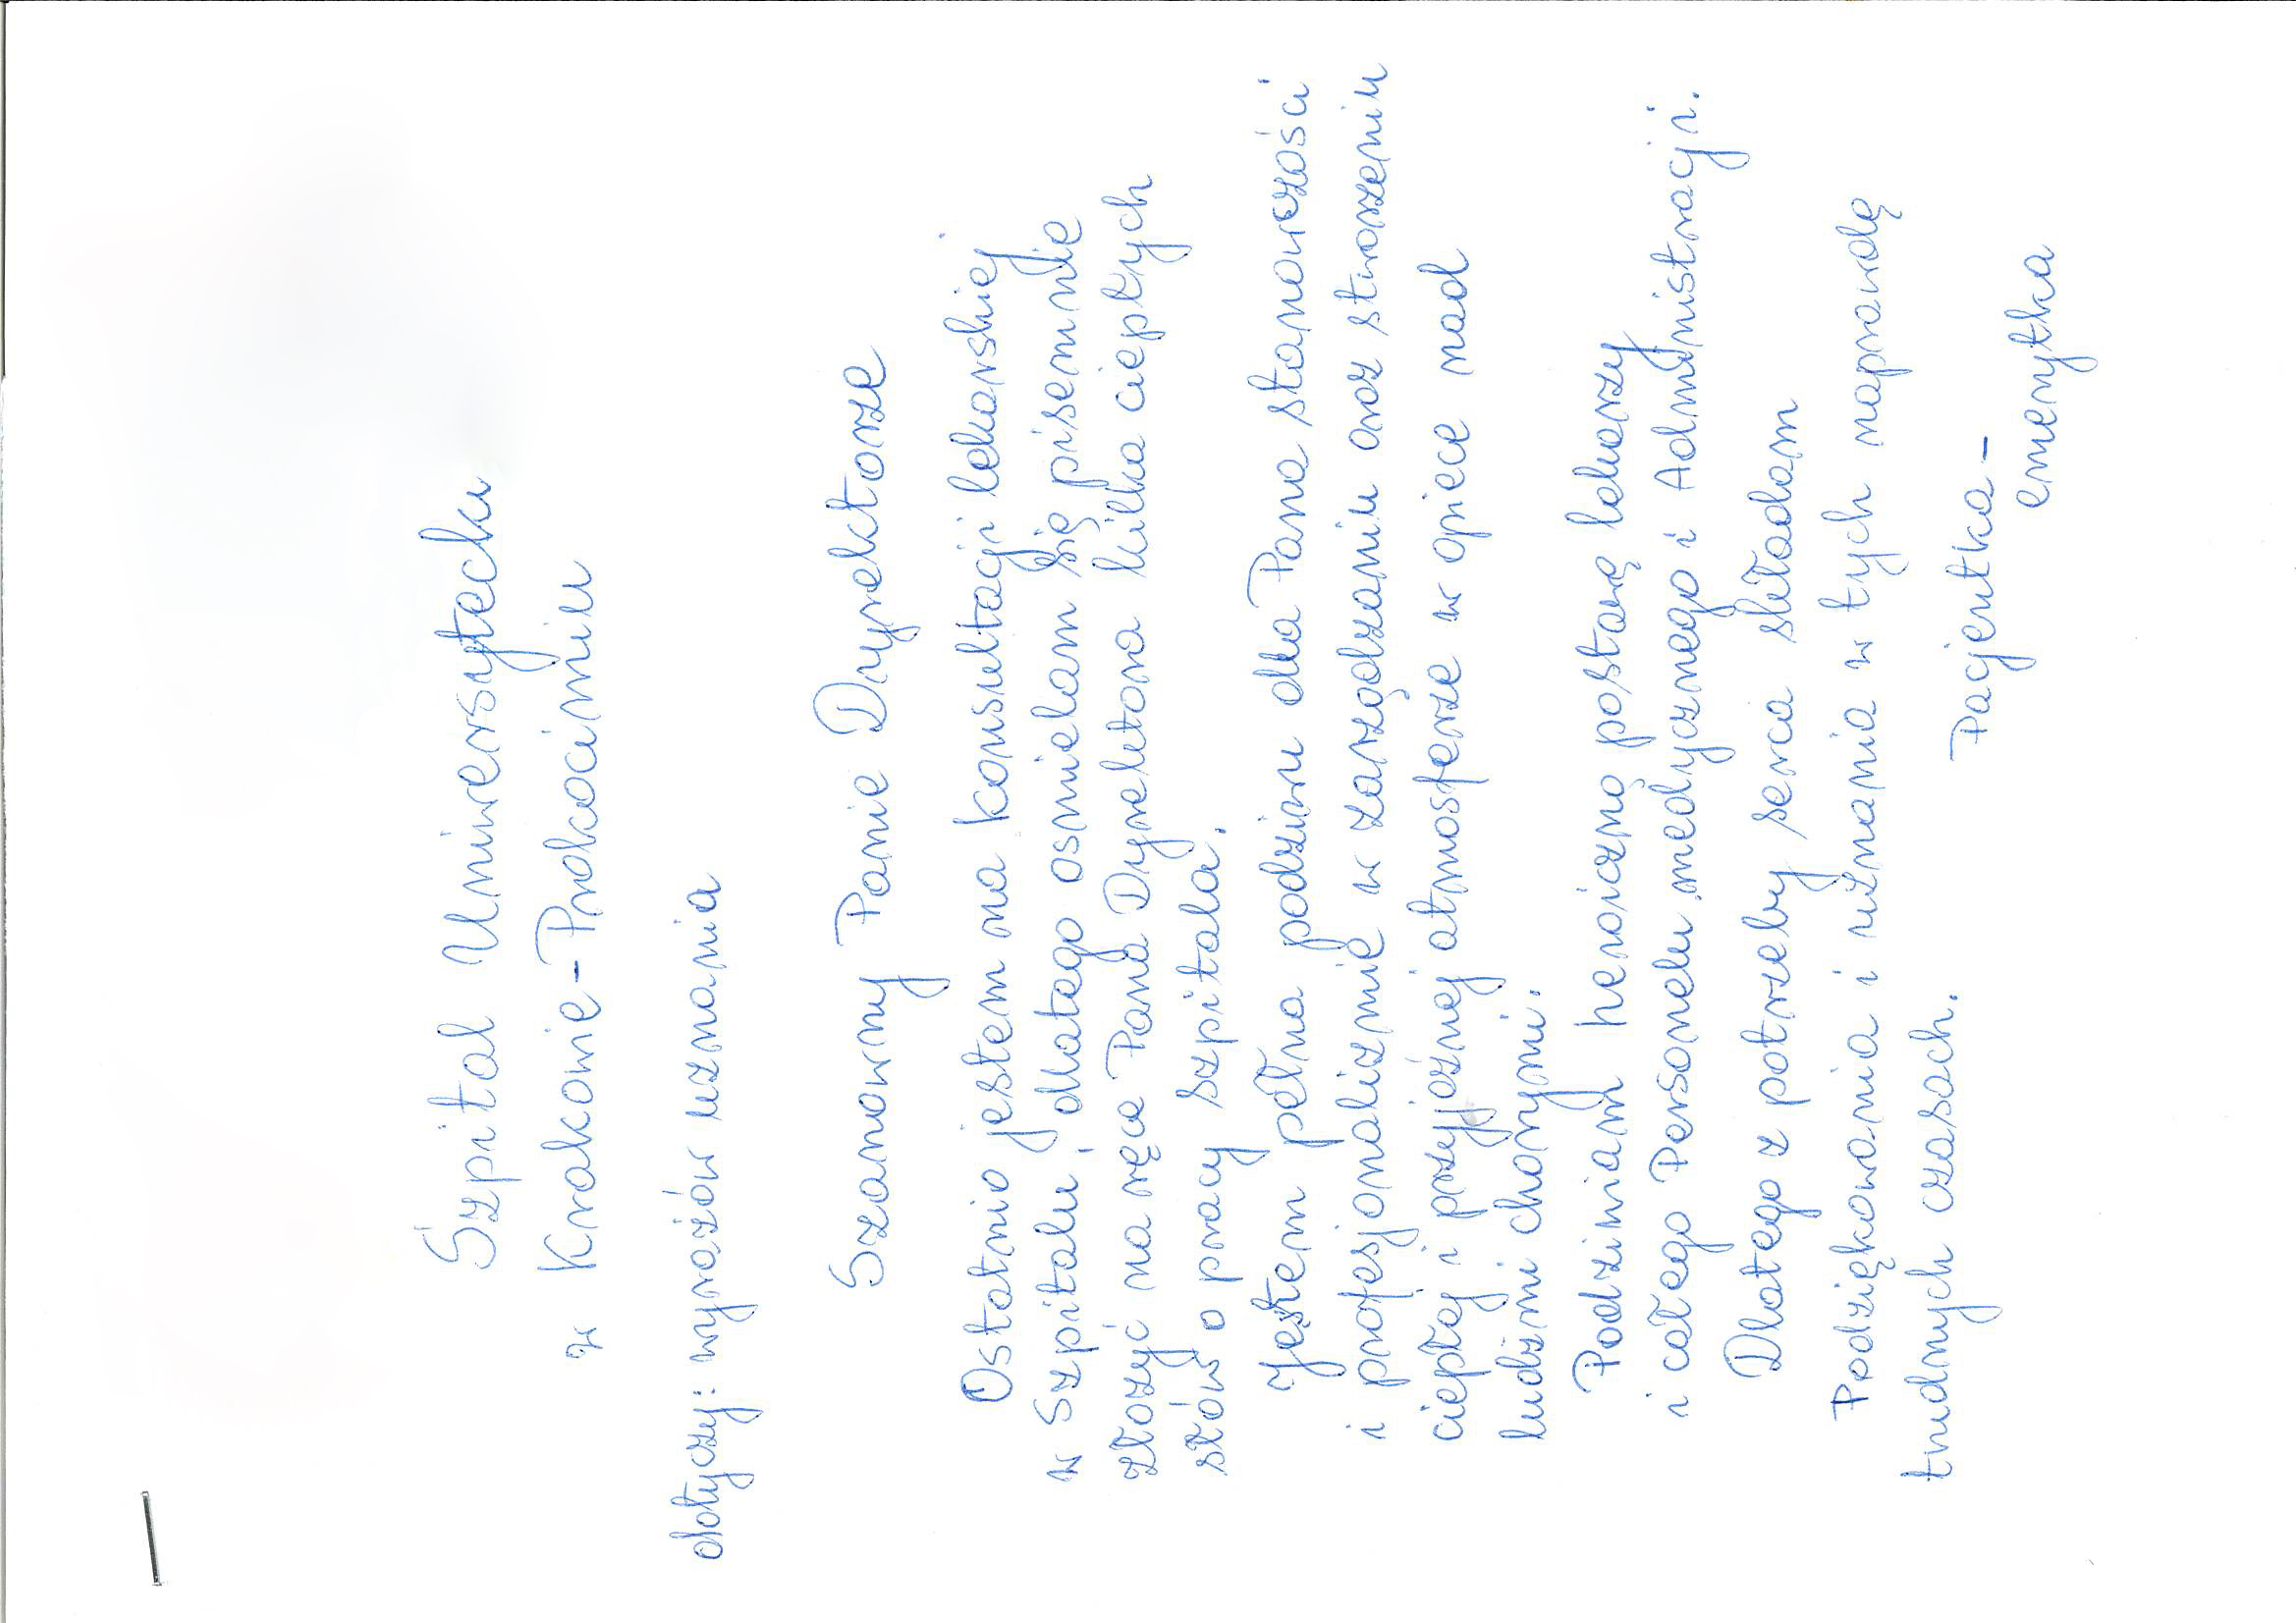 Szpital Uniwersytecki
w Krakowie-Prokocimiu
dotyczy: wyrażów uznania
Szanowny Panie Dyrektorze
Ostatnio jestem na konsultacji lekarskiej
w Szpitalu, dlatego osmielam się pisemnie
złożyć na ręce Pana Dyrektora kilka ciepłych
słów o pracy Szpitala.
Jestem pełna podziwu dla Pana stanowczości
i profesjonalizmie w zarządzaniu oraz stworzeniu
ciepłej i przyjaźnej atmosferze w opiece nad
ludźmi chorymi.
Podziwiam heroiczną postawę lekarzy
i całego Personelu medycznego i Administracji.
Dlatego z potrzeby serca składam
Podziękowania i uznania w tych naprawdę
trudnych czasach.
Pacjentka-
emerytka